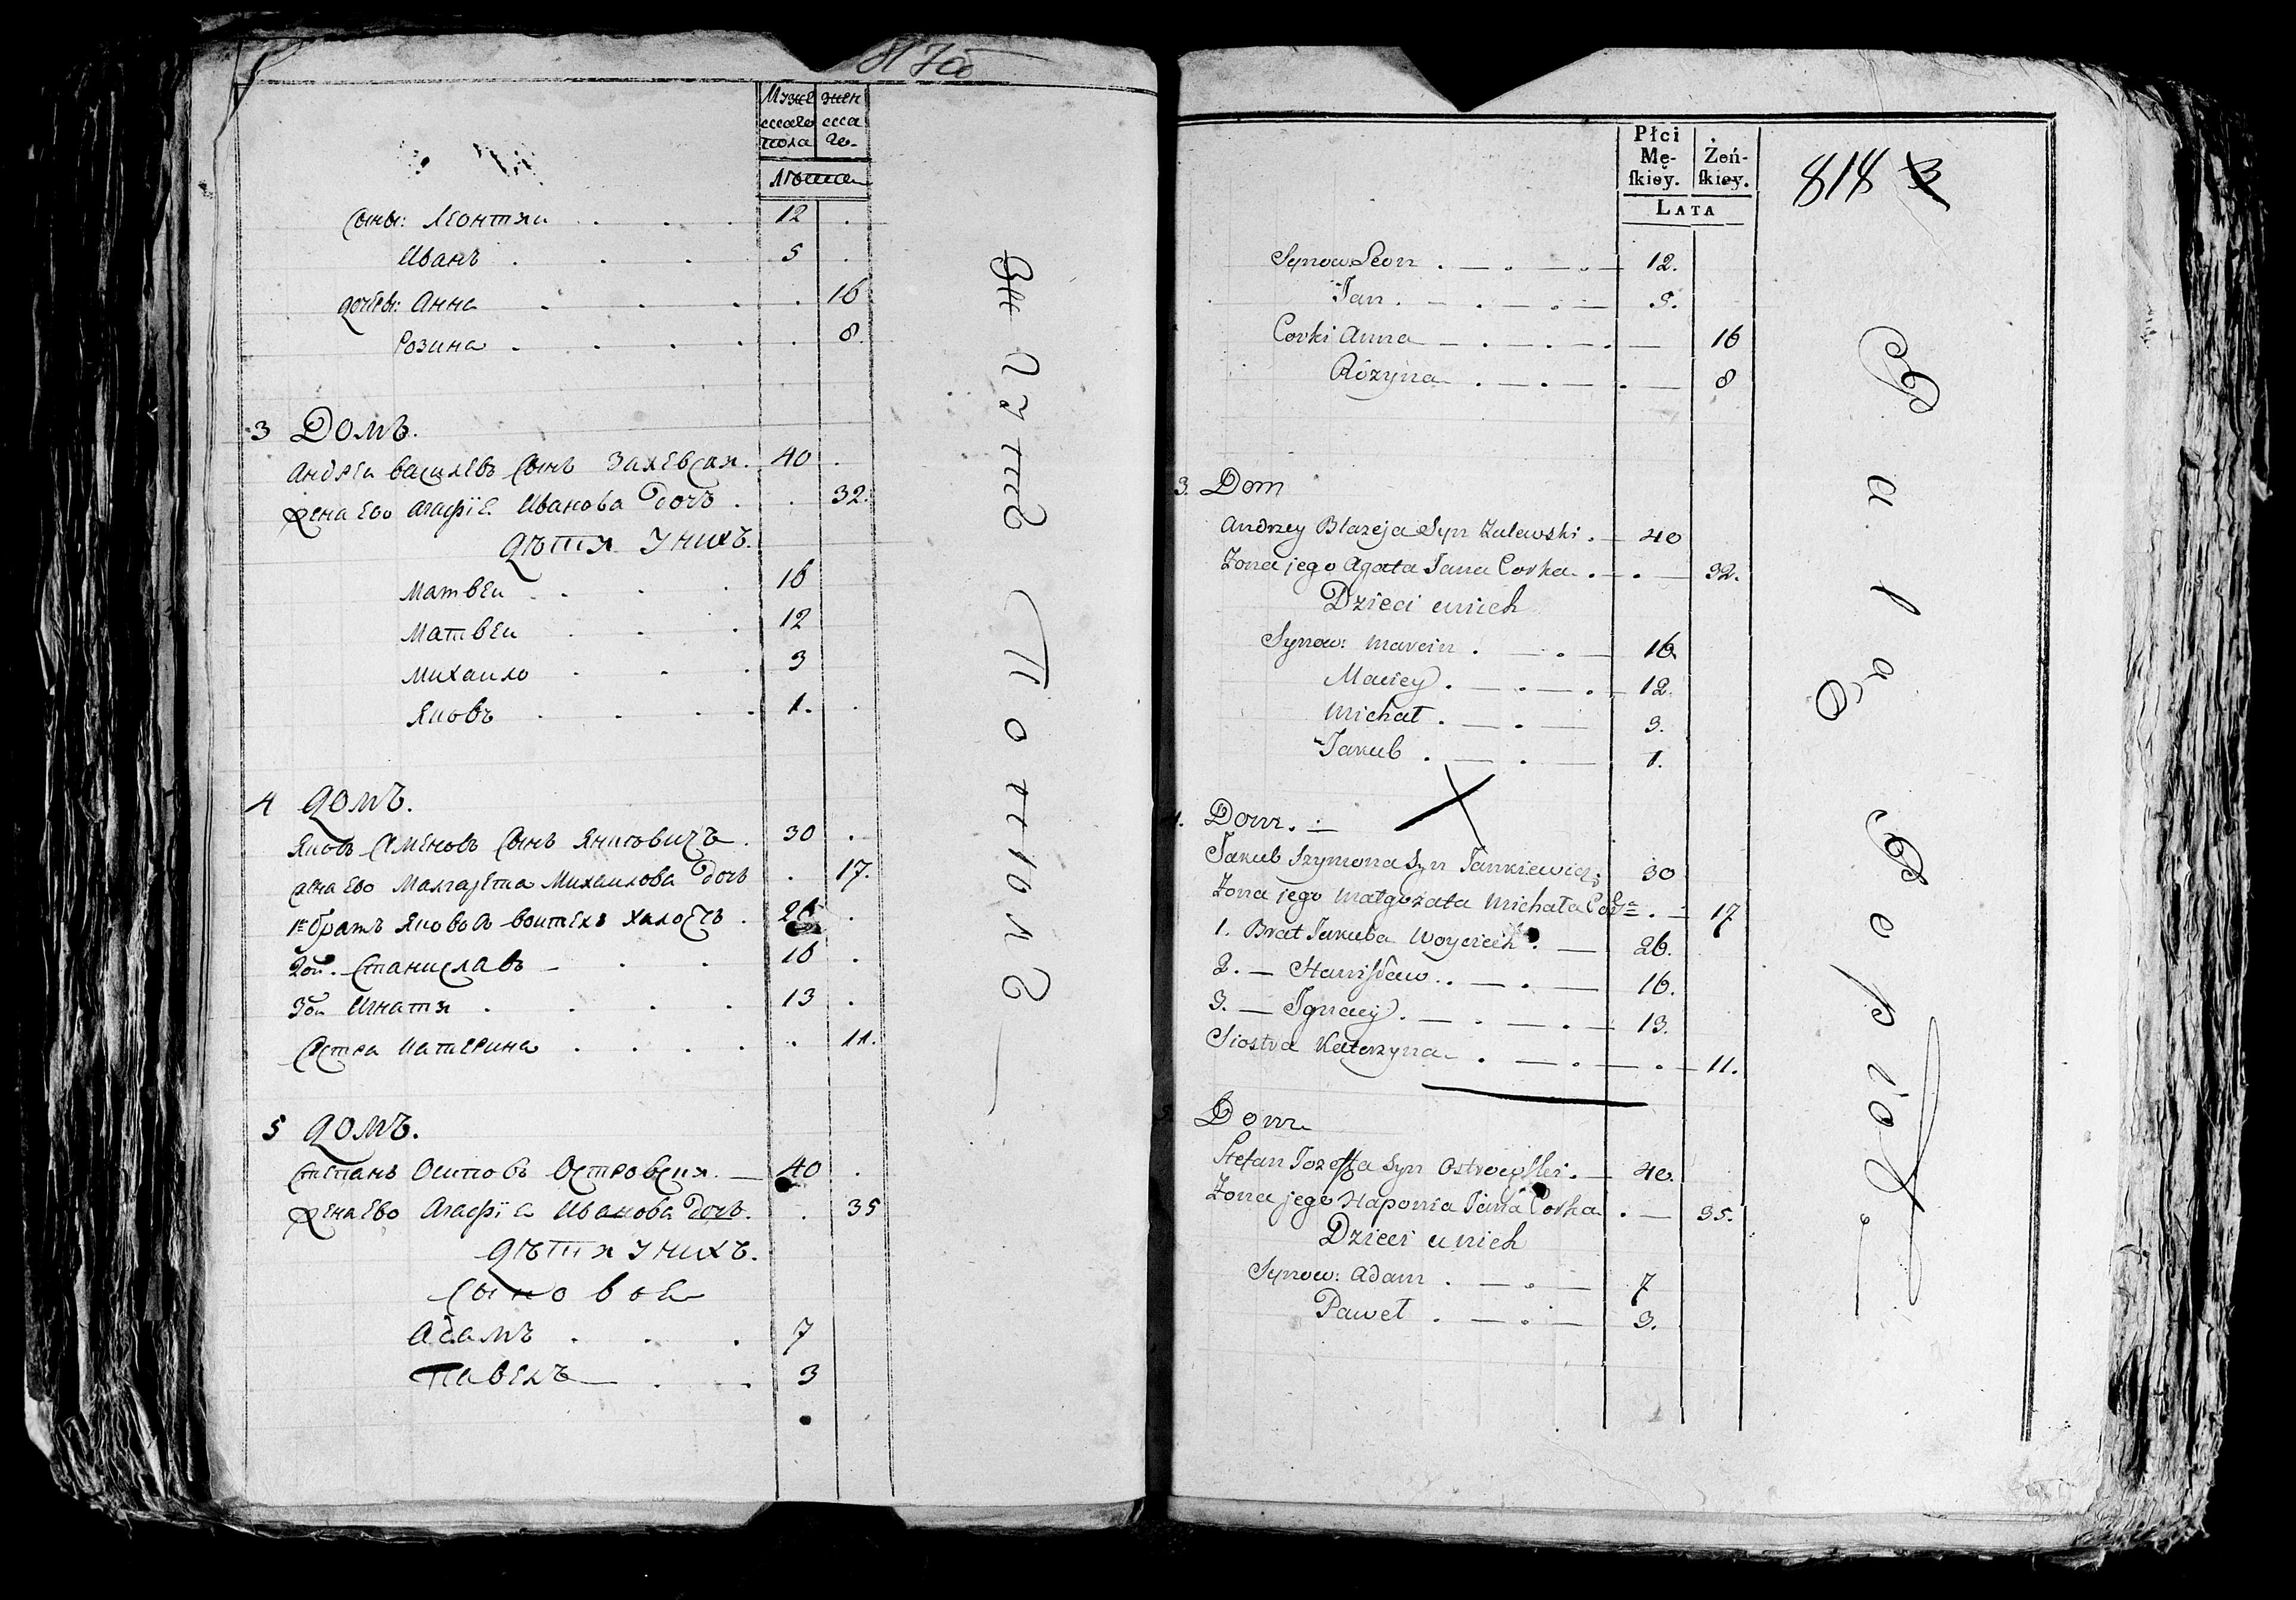 817об
Мужескаго пола
женскаго
Лѣта
Сыны: Леонтяи 12
Иванъ 5
дочеры: Анна 16
Розина 8.
3 Домъ.
Андреи василевъ Сынъ Залевски. 40
жена ево Агафіе Иванова дочь 32.
дѣтя у нихъ.
Матвеи 16
Матвеи 12
Михаило 3
Яковъ 1.
4 домъ.
Яковъ Семеновъ Сынъ Янковичъ 30
жена ево Малгарета Михаилова дочь 17.
1й братъ Якововъ воитехъ 26
2ой. Станиславъ 16
3ои Игнатя 13
Сестра Катерина 11.
5 домъ.
Степанъ Осиповъ Островски. 40
жена ево Агафіа Иванова дочь. 35
дѣтя у нихъ.
Сыновое
Адамъ 7
Павелъ 3
818 3
Płci Mę-ſkiey.
Żeń-ſkiey.
LATA
Synow Leon 12.
Jan 5.
Corki Anna 16
Rozyna 8
3. Dom
Andrzey Blazeja Syn Zalewski 40
Zona jego Agata Jana Corka 32.
Dzieci unich
Synow: Marcin 16.
Maciey 12.
Michał 3.
Jakub 1.
4. Dom.
Jakub Szymona Syn Jankiewicz 30
Zona jego Małgorzata Michała Corka 17
1. Brat Jakuba Woyciech 26.
2. — Stanisław 16.
3. — Ignacy 13.
Siostra Katerzyna 11.
5. Dom
Stefan Jozeffa Syn Ostrowski 40.
Zona jego Haponia Jana Corka 35.
Dzieci unich
Synow: Adam 7
Paweł 3.